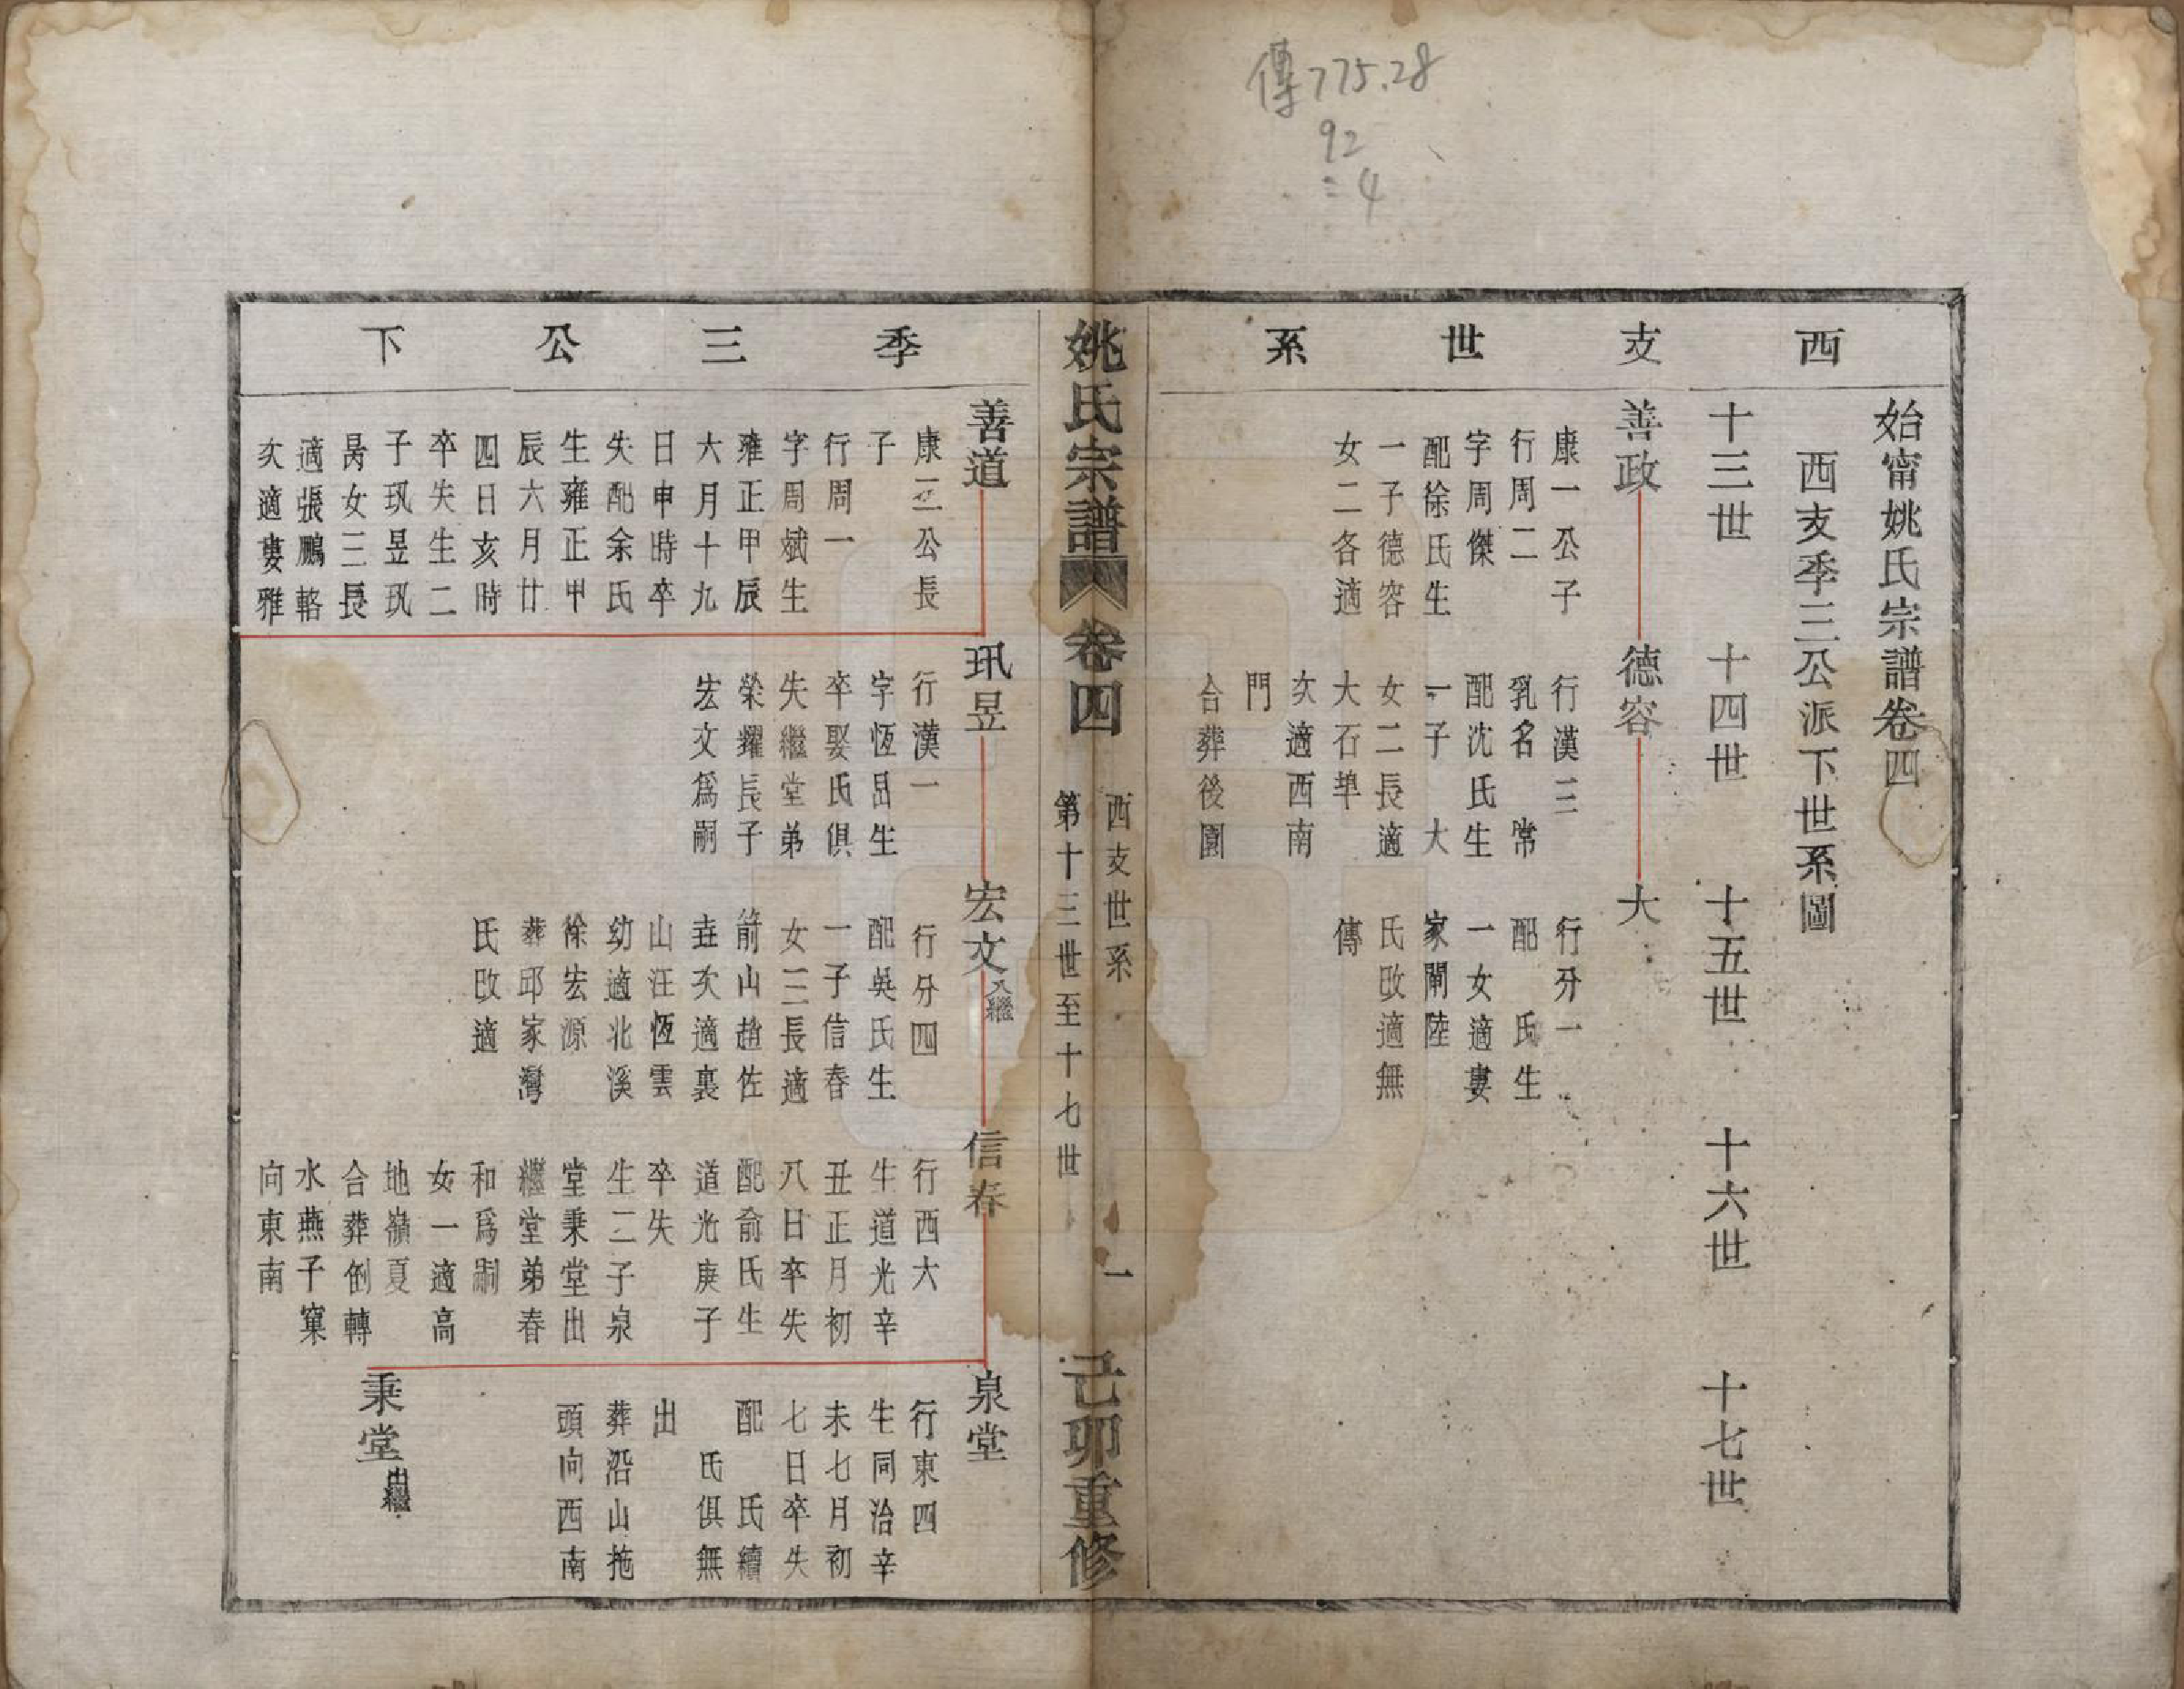 傳775.28
92
:4
西支世系
始甯姚氏宗譜卷四
西支季三公派下世系圖
十三世
十四世
十五世
十六世
十七世
善政
康一公子
行周二
字周傑
配徐氏生
一子德容
女二各適
德容
行漢三
乳名 常
配沈氏生
一子 大
女二長適
大石埠
次適西南
門
合葬後園
大
行分一
配 氏生
一女適婁
家閘陸
氏改適無
傳
姚氏宗譜
卷四
西支世系
第十三世至十七世
一
己卯重修
季三公下
善道
康三公長
子
行周一
字周斌生
雍正甲辰
大月十九
日申時卒
失配余氏
生雍正甲
辰六月廿
四日亥時
卒失生二
子玑昱玑
昺女三長
適張鵬輅
次適婁雅
玑昱
行漢一
字恆昌生
卒娶氏俱
失繼堂弟
榮耀長子
宏文爲嗣
宏文
入繼
行分四
配吳氏生
一子信春
女三長適
箭山趙佐
垚次適裏
山汪恆雲
幼適北溪
徐宏源
葬邱家灣
氏改適
信春
行西大
生道光辛
丑正月初
八日卒失
配俞氏生
道光庚子
卒失
生二子泉
堂秉堂出
繼堂弟春
和爲嗣
女一適高
地嶺夏
合葬倒轉
水燕子窠
向東南
泉堂
行東四
生同治辛
未七月初
七日卒失
配 氏續
氏俱無
出
葬沿山拖
頭向西南
秉堂
出繼